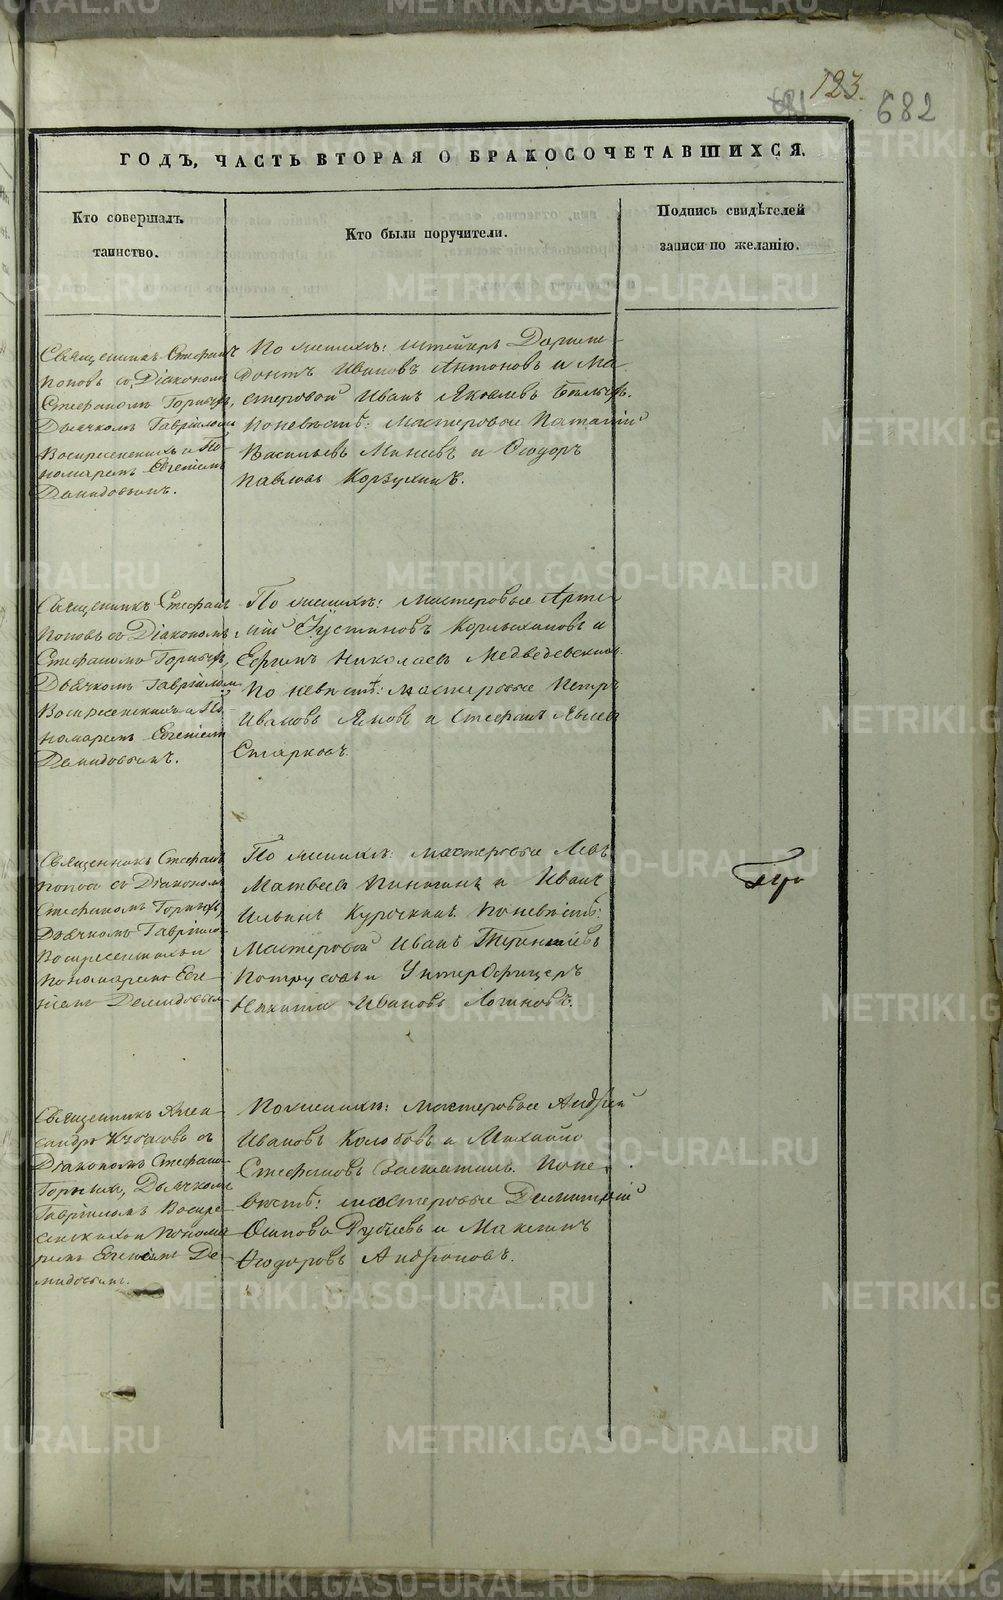 123.
681
682
ГОДЪ, ЧАСТЬ ВТОРАЯ О БРАКОСОЧЕТАВШИХСЯ.
Кто совершалъ
таинство.
Кто были поручители.
Подпись свидѣтелей
записи по желанію.
Священникъ Стефанъ
Поповъ съ Діакономъ
Стефаномъ Горныхъ,
Дьячкомъ Гавріиломъ
Воскресенскихъ и По-
номаремъ Евгеніемъ
Демидовымъ.
По женихѣ: штейгеръ Дориме-
донтъ Ивановъ Антоновъ и Ма-
стеровой Иванъ Яковлевъ
По невѣстѣ: Мастеровые
Васильевъ Минеевъ и Ѳеодоръ
Павловъ Корзухинъ.
Священникъ Стефанъ
Поповъ съ Діакономъ
Стефаномъ Горныхъ,
Дьячкомъ Гавріиломъ
Воскресенскихъ и По-
номаремъ Евгеніемъ
Демидовымъ.
По женихѣ: Мастеровые Арте-
мій Іустиновъ и
Ефимъ Николаевъ Медведевскихъ
По невѣстѣ: мастеровые Петръ
Ивановъ и Стефанъ
Старковъ.
Священникъ Стефанъ
Поповъ съ Діакономъ
Стефаномъ Горныхъ,
Дьячкомъ Гавріило
Воскресенскихъ и
Пономаремъ Евге-
ніемъ Демидовым
По женихѣ: мастеровые Левъ
Матвеевъ Пинягинъ и Иванъ
Ильинъ Курочкинъ. По невѣстѣ:
Мастеровой Иванъ Терентіевъ
Потрусовъ и УнтерОфицеръ
Никита Ивановъ Логиновъ.
Священникъ Алек-
сандръ съ
Діакономъ Стефано
Горныхъ, Дьячкомъ
Гавріиломъ Воскре-
сенскихъ и Понома-
ремъ Евгеніемъ Де-
мидовымъ.
По женихѣ: Мастеровые Андрей
Ивановъ Колобовъ и Михайло
Стефановъ По не-
вѣстѣ: мастеровые Димитрій
Осиповъ и Максимъ
Ѳеодоровъ Андроновъ.
METRIKI.GASO-URAL.RU